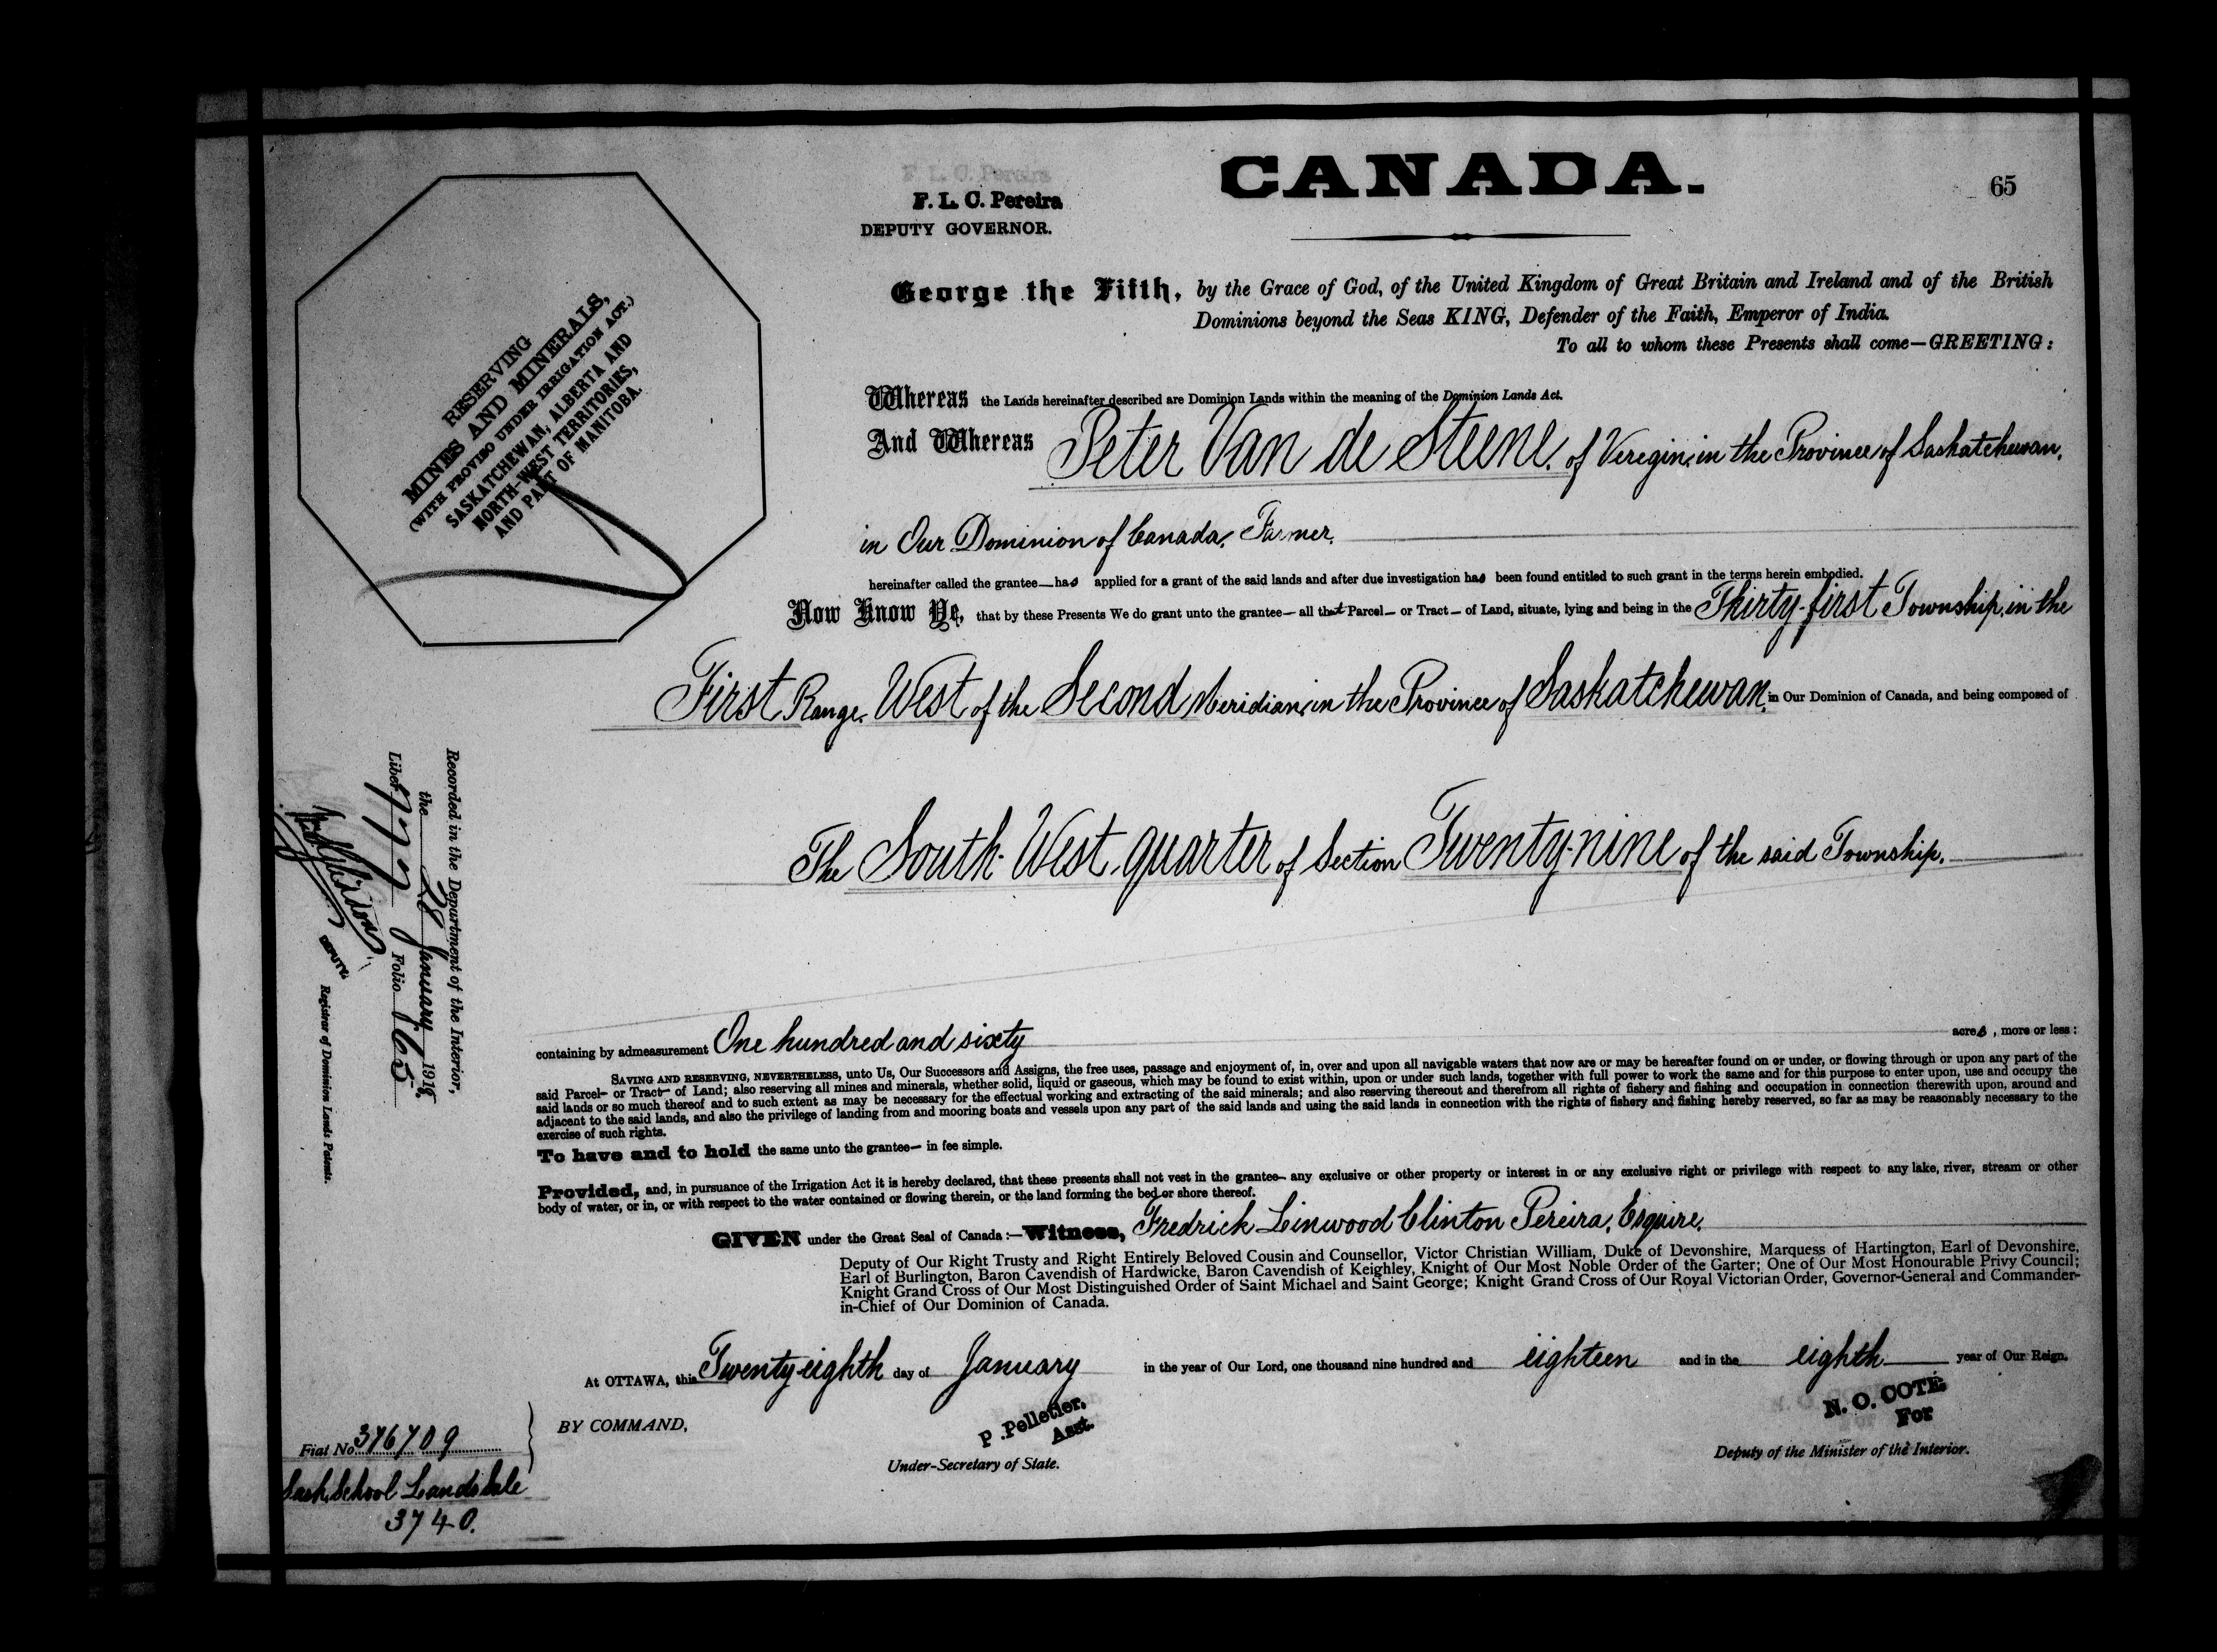 CANADA.
65
F. L. C. Pereira
F. L. C. Pereira
DEPUTY GOVERNOR.
George the Fifth, by the Grace of God, of the United Kingdom of Great Britain and Ireland and of the British
Dominions beyond the Seas KING, Defender of the Faith, Emperor of India.
To all to whom these Presents shall come—GREETING:
RESERVING
MINES AND MINERALS,
(WITH PROVISO UNDER IRRIGATION ACT.)
SASKATCHEWAN, ALBERTA AND
NORTH-WEST TERRITORIES,
AND PART OF MANITOBA.
Whereas the Lands hereinafter described are Dominion Lands within the meaning of the Dominion Lands Act.
And Whereas Peter Van de Steene, of Veregin, in the Province of Saskatchewan,
in Our Dominion of Canada, Farmer,
hereinafter called the grantee—has applied for a grant of the said lands and after due investigation has been found entitled to such grant in the terms herein embodied.
Now Know Ye, that by these Presents We do grant unto the grantee— all that Parcel— or Tract— of Land, situate, lying and being in the Thirty-first Township, in the
First Range, West of the Second Meridian, in the Province of Saskatchewan, in Our Dominion of Canada, and being composed of
The South-West quarter of Section Twenty-nine of the said Township.
containing by admeasurement One hundred and sixty acres, more or less:
SAVING AND RESERVING, NEVERTHELESS, unto Us, Our Successors and Assigns, the free uses, passage and enjoyment of, in, over and upon all navigable waters that now are or may be hereafter found on or under, or flowing through or upon any part of the
said Parcel— or Tract— of Land; also reserving all mines and minerals, whether solid, liquid or gaseous, which may be found to exist within, upon or under such lands, together with full power to work the same and for this purpose to enter upon, use and occupy the
said lands or so much thereof and to such extent as may be necessary for the effectual working and extracting of the said minerals; and also reserving thereout and therefrom all rights of fishery and fishing and occupation in connection therewith upon, around and
adjacent to the said lands, and also the privilege of landing from and mooring boats and vessels upon any part of the said lands and using the said lands in connection with the rights of fishery and fishing hereby reserved, so far as may be reasonably necessary to the
exercise of such rights.
To have and to hold the same unto the grantee— in fee simple.
Provided, and, in pursuance of the Irrigation Act it is hereby declared, that these presents shall not vest in the grantee— any exclusive or other property or interest in or any exclusive right or privilege with respect to any lake, river, stream or other
body of water, or in, or with respect to the water contained or flowing therein, or the land forming the bed or shore thereof.
GIVEN under the Great Seal of Canada:—Witness, Fredrick Linwood Clinton Pereira, Esquire,
Deputy of Our Right Trusty and Right Entirely Beloved Cousin and Counsellor, Victor Christian William, Duke of Devonshire, Marquess of Hartington, Earl of Devonshire,
Earl of Burlington, Baron Cavendish of Hardwicke, Baron Cavendish of Keighley, Knight of Our Most Noble Order of the Garter; One of Our Most Honourable Privy Council;
Knight Grand Cross of Our Most Distinguished Order of Saint Michael and Saint George; Knight Grand Cross of Our Royal Victorian Order, Governor-General and Commander-
in-Chief of Our Dominion of Canada.
At OTTAWA, this Twenty-eighth day of January in the year of Our Lord, one thousand nine hundred and eighteen and in the eighth year of Our Reign.
BY COMMAND,
P. Pelletier,
Asst.
Under-Secretary of State.
N. O. COTE
For
Deputy of the Minister of the Interior.
Recorded in the Department of the Interior,
the 28 January 1918,
Liber 777 Folio 65
DEPUTY
Registrar of Dominion Lands Patents.
Fiat No 376709
Sask. School Lands Sale
3740.